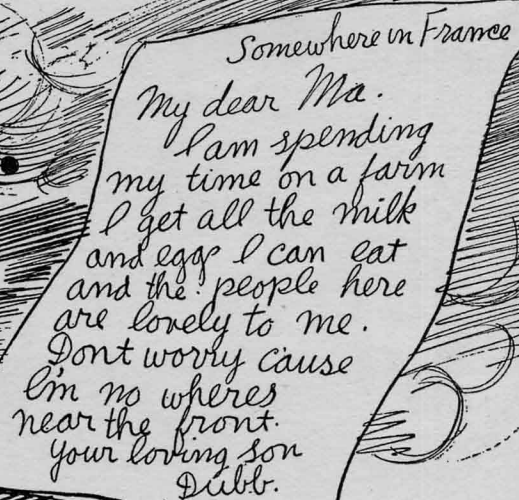 Somewhere in France
My dear Ma.
I am spending
my time on a farm
I get all the milk
and eggs I can eat
and the people here
are lovely to me.
Dont worry cause
I'm no wheres
near the front.
Your loving son
Dubb.